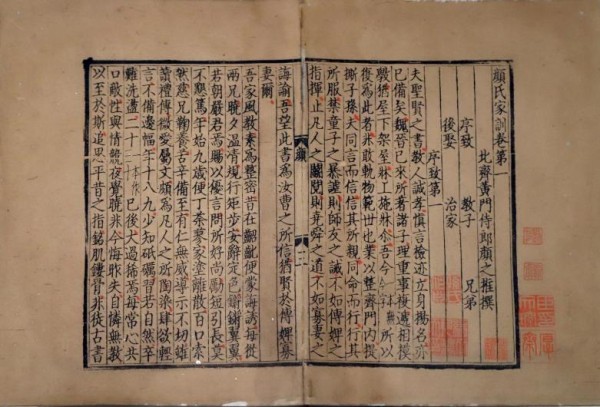 顔氏家訓卷第一
北齊黃門侍郎顔之推撰
序致 教子 兄弟
後娶 治家
序致第一
夫聖賢之書教人誠孝慎言檢迹立身揚名亦
已備矣魏晉已來所著諸子理重事複遞相模
斆猶屋下架屋牀上施牀尒吾今所以
復爲此者非敢軌物範世也業以整齊門內提
撕子孫夫同言而信信其所親同命而行行其
所服禁童子之暴謔則師友之誡不如傅婢之
指揮止凡人之鬭鬩則堯舜之道不如寡妻之
顔
二
誨諭吾望此書爲汝曹之所信猶賢於傅婢寡
妻爾
吾家風教素爲整密昔在齠齔便蒙誨誘每從
兩兄曉夕溫凊規行矩步安辭定色鏘鏘翼翼
若朝嚴君焉賜以優言問所好尚勵短引長莫
不懇篤年始九歲便丁荼蓼家塗離散百口索
然慈兄鞠養苦辛備至有仁無威導示不切雖
讀禮傳微愛屬文頗爲凡人之所陶染肆欲輕
言不備邊幅年十八九少知砥礪習若自然卒
難洗盪二十已後大過稀焉每常心共
口敵性與情競夜覺曉非今悔昨失自憐無教
以至於斯追思平昔之指銘肌鏤骨非徒古書